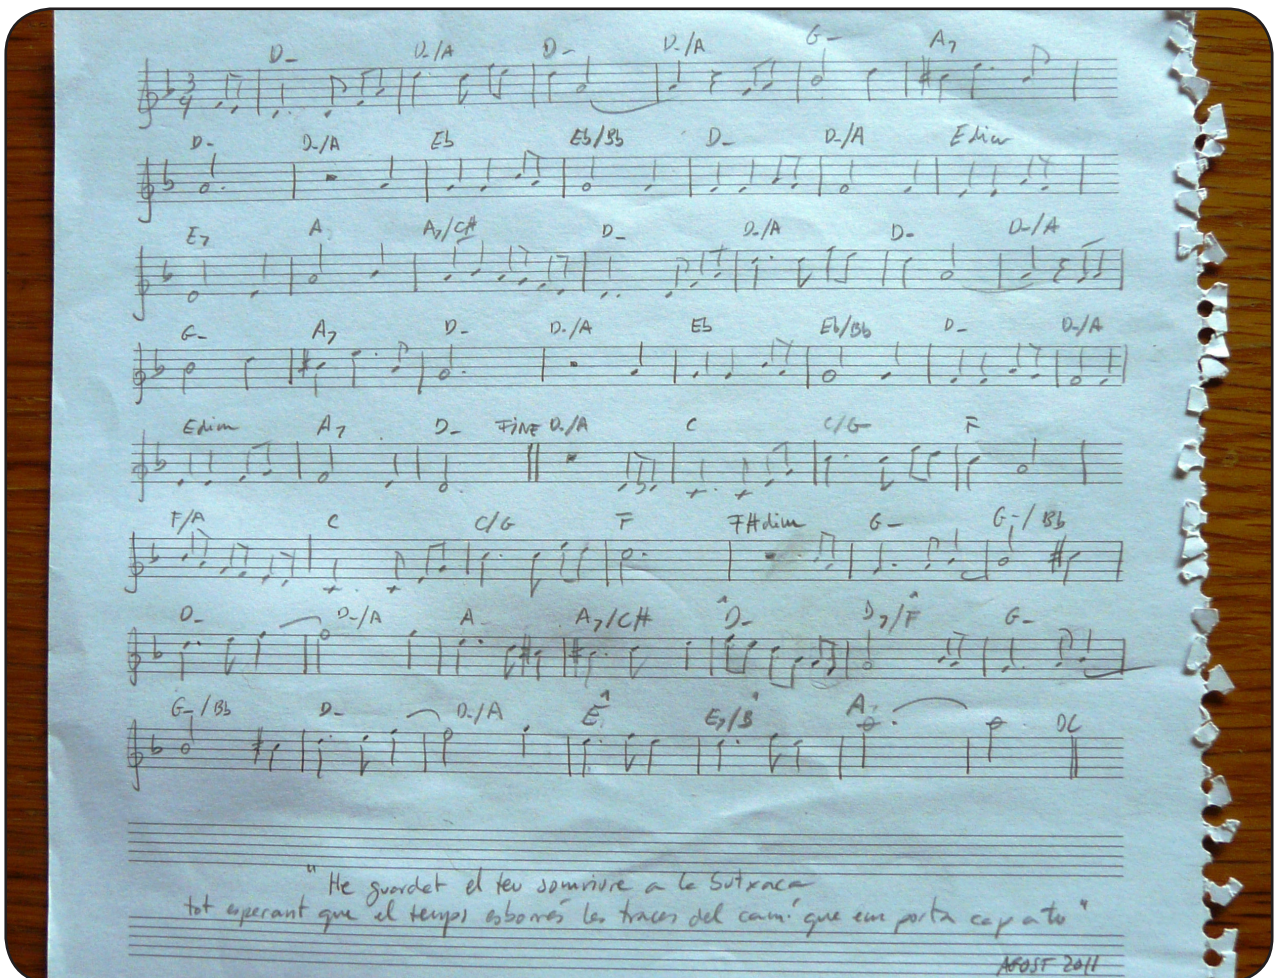 3/4 D- D-/A D- D-/A G- A7
D- D-/A Eb Eb/Bb D- D-/A Edim
E7 A A7/C# D- D-/A D- D-/A
G- A7 D- D-/A Eb Eb/Bb D- D-/A
Edim A7 D- FINE D-/A C C/G F
F/A C C/G F F#dim G- G-/Bb
D- D-/A A- A7/C# D- D7/F G-
G-/Bb D- D-/A E E7/B A7 DC
"He guardat el teu somriure a la butxaca
tot esperant que el temps esborrés les traces del camí que em porta cap a tu"
AGOST 2011